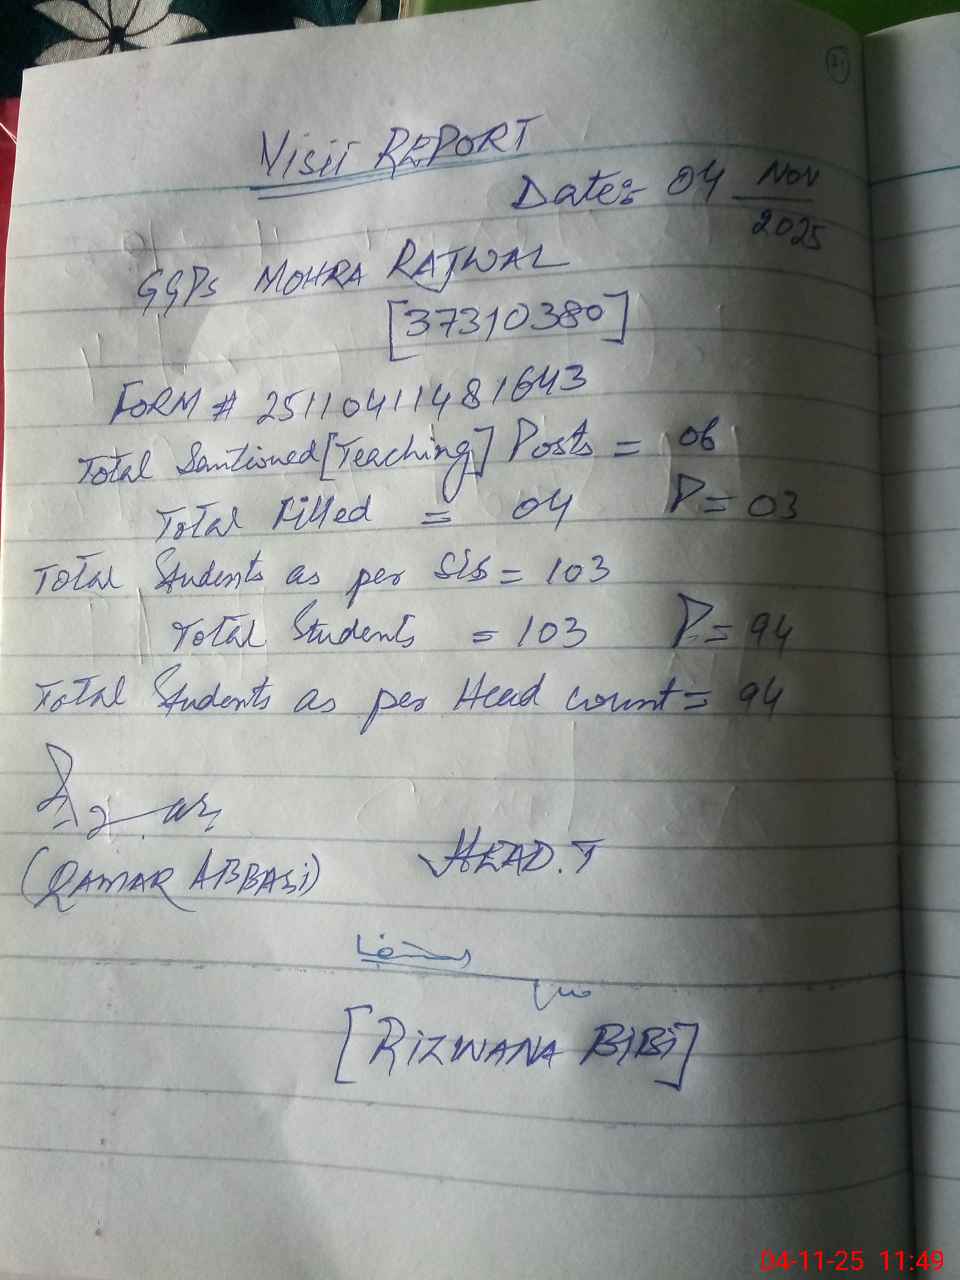 71
Visit REPORT
Date:- 04 Nov
2025
GGPS MOHRA RAJWAL
[37310380]
FORM # 25110411481643
Total Santioned [Teaching] Posts = 06
Total Filled = 04 P = 03
Total Students as per SIS = 103
Total Students = 103 P = 94
Total Students as per Head count = 94
(QAMAR ABBASI) HEAD.T
[RIZWANA BIBI]
04-11-25 11:49